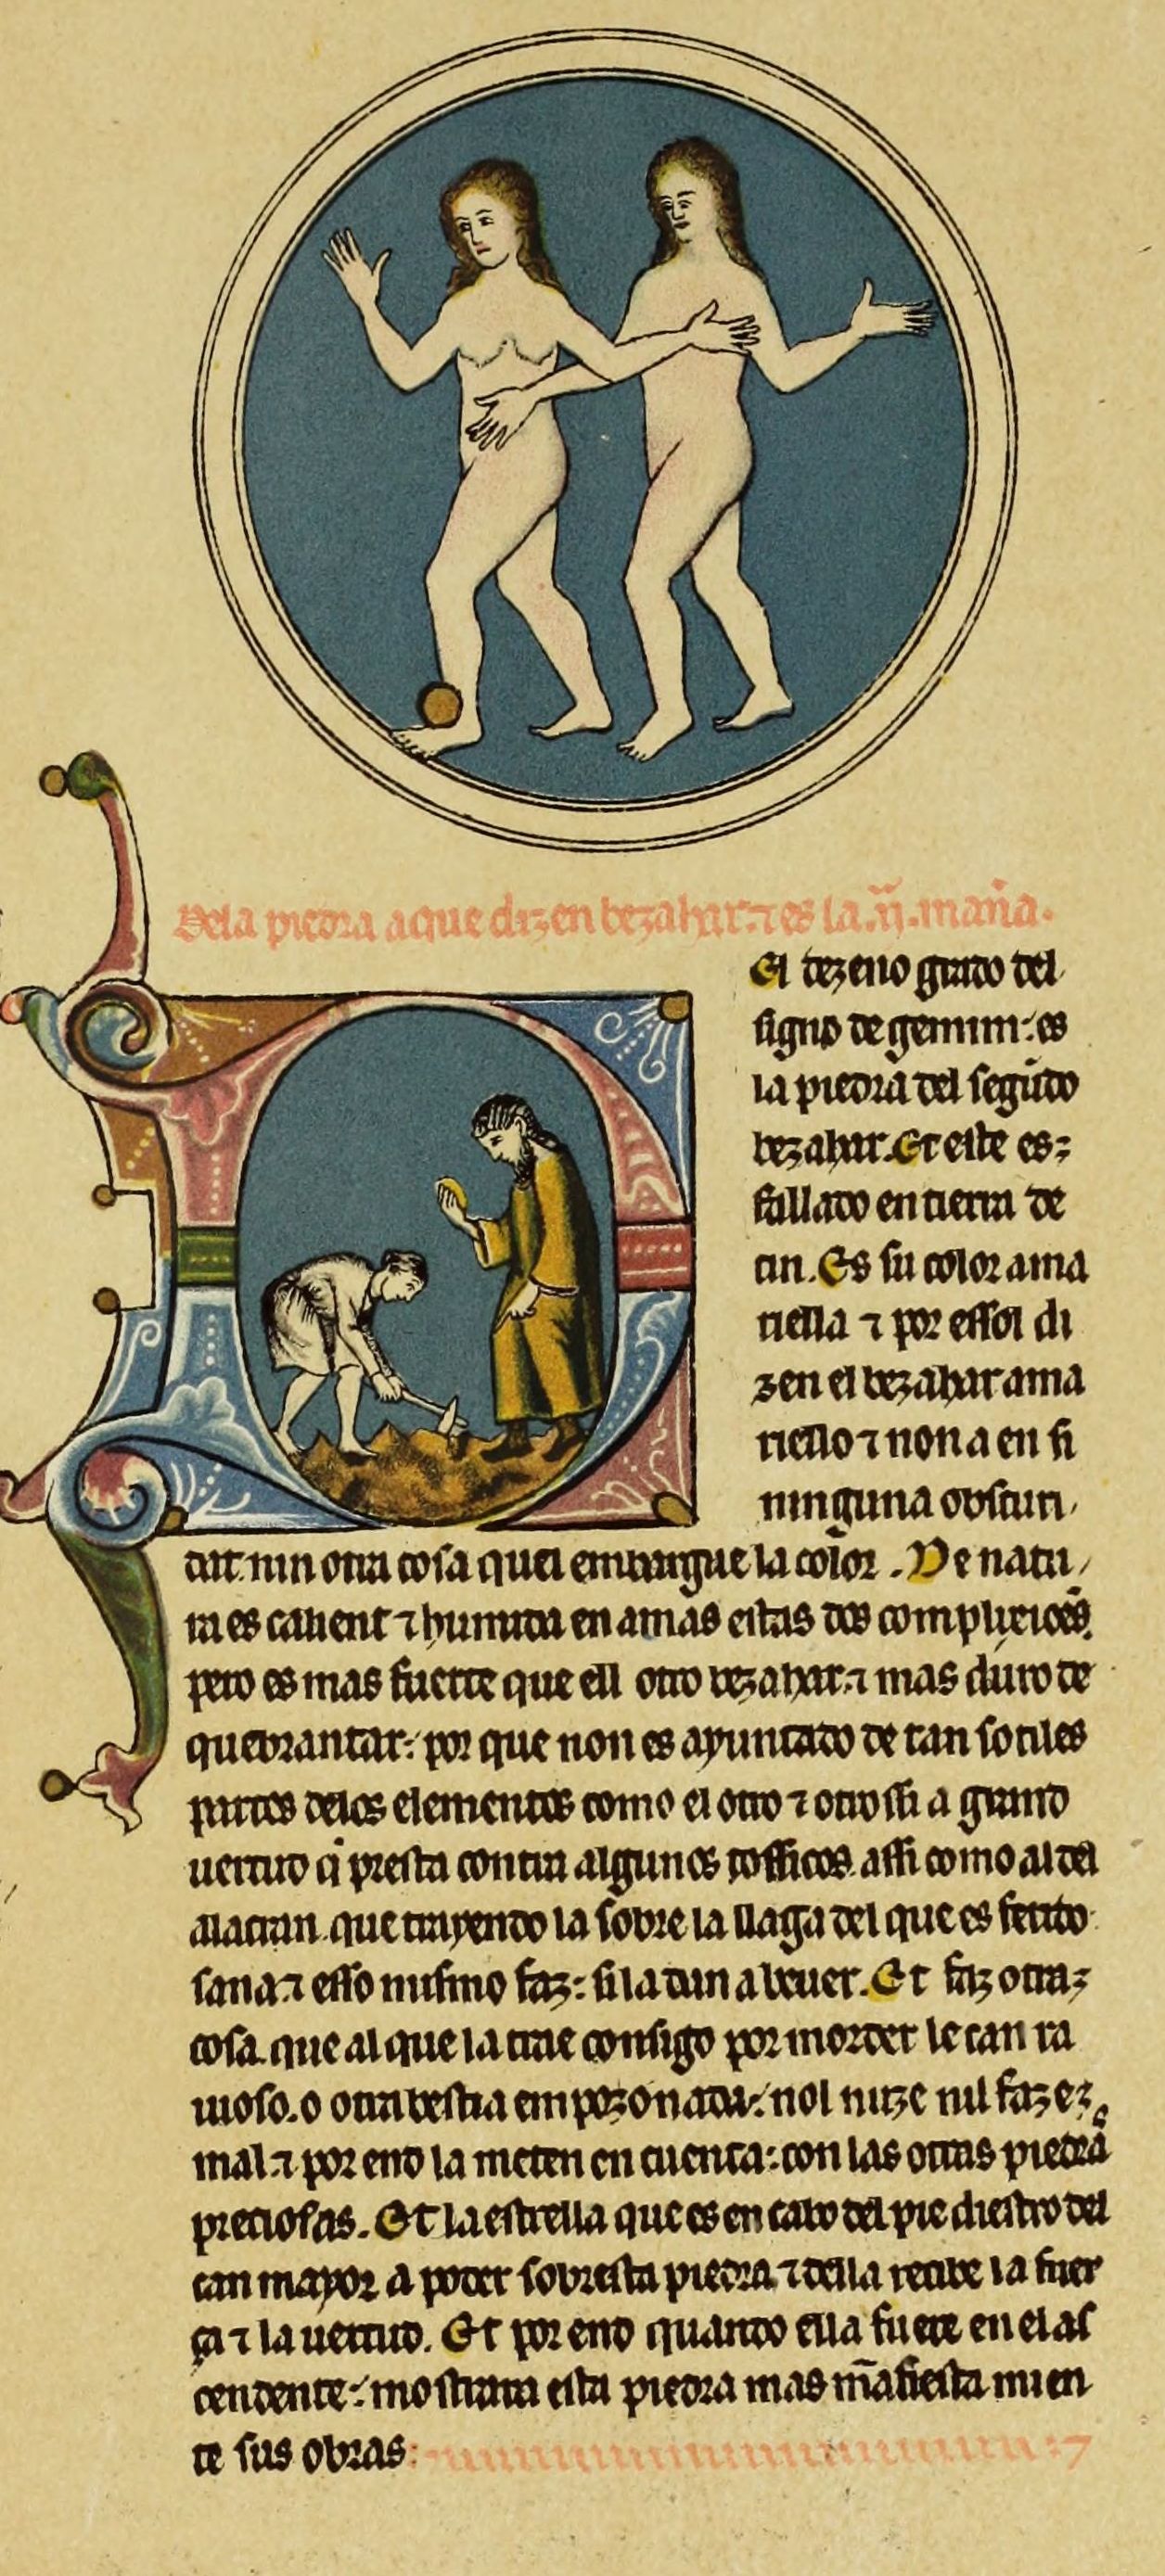 Dela piedra aque dizen bezahar. ⁊ es la .ij. maña.
El dezeno grado del
signo de gemini: es
la piedra del segũdo
bezahar. Et este es
fallado en tierra de
cin. Es su color ama
riella ⁊ por essol di
zen el bezahar ama
riello ⁊ non a en si
ninguna obscuri
dat nin otra cosa quel embargue la color. De natu
ra es calient ⁊ humida en amas estas dos complixiões.
pero es mas fuerte que ell otro bezahar. ⁊ mas duro de
quebrantar: por que non es ayuntado de tan sotiles
partes delos elementos como el otro ⁊ otrossi a grand
uertud q̃ presta contra algunos tossicos. assi como al del
alacran. que trayendo la sobre la llaga del que es ferido
sana. ⁊ esso mismo faz: si la dan a beuer. Et faz otra
cosa. que al que la trae consigo por morder le can ra
uioso. o otra bestia empozonada: nol nuze nil faze
mal. ⁊ por end la meten en cuenta: con las otras piedras
preciosas. Et la estrella que es en cabo del pie diestro del
can mayor a poder sobresta piedra. ⁊ della recibe la fuer
ça ⁊ la uertud. Et por end quando ella fuere en el as
cendente: mostrara esta piedra mas mãfiesta mien
te sus obras: